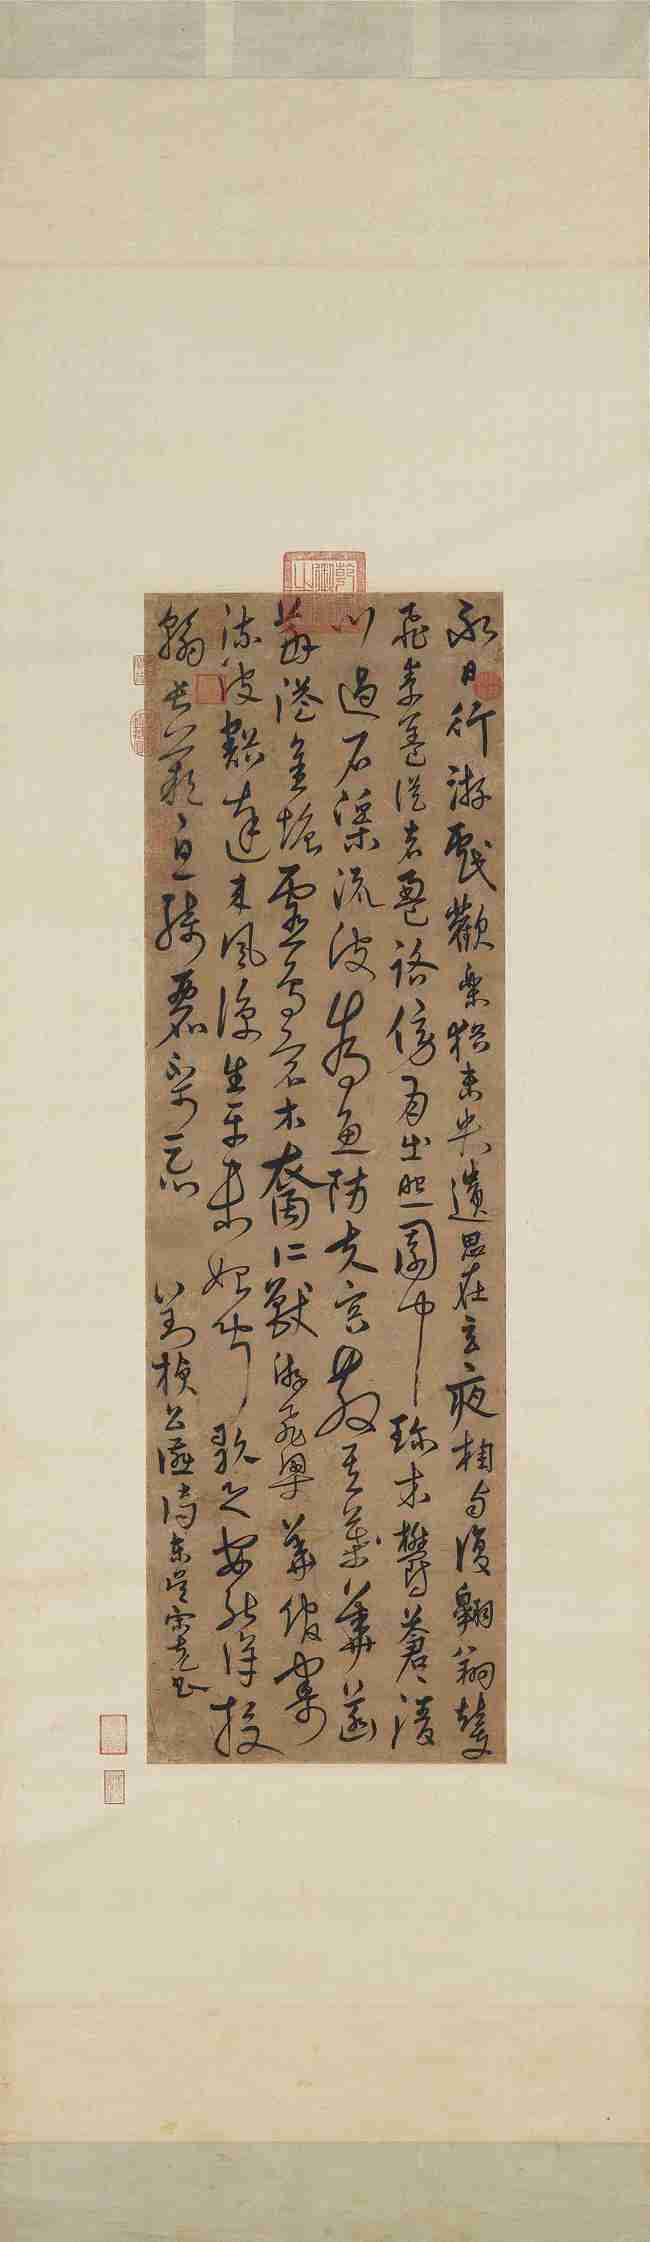 永日行游戲歡樂猶未央遺思在玄夜相與復翱翔輦車
飛素蓋從者盈路傍月出照園中珎木鬱蒼〻清
川過石渠流波為魚防夫容散其葉華菡
萏溢金塘靈鳥宿水裔仁獸游飛梁華館寄
流波豁達來風涼生平未始聞歌之安能詳投
翰長歎息綺麗不可忘
劉楨公讌詩東吳宋克書